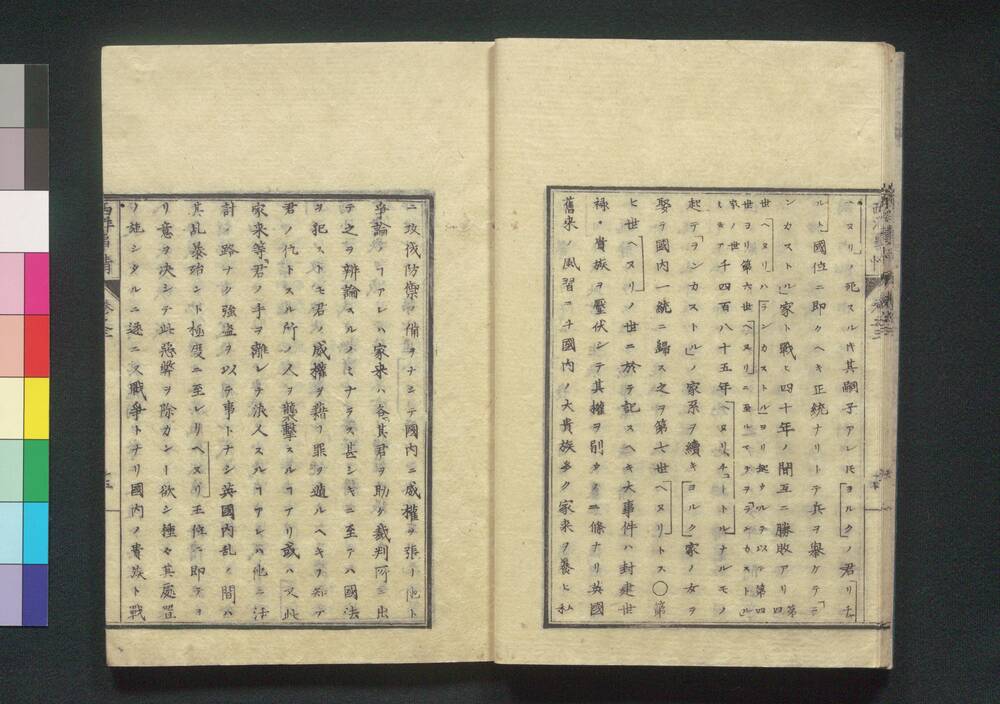 ヘヌリノ死スル時其嗣子アレ𪜈ヨルクノ君リチ
ルト國位ニ即クヘキ正統ナリトテ兵ヲ舉ケテラ
ンカストル家ト戰ヒ四十年ノ間互ニ勝敗アリ第四
世ヘヌリハランカストルヨリ起
世ヨリ第六世ヘヌリニ至ルマテヲランカストル
家ノ世
ト千四百八十五年ヘヌリチュトルナルモノ
起テランカストルノ家系ヲ續キヨルク家ノ女ヲ
娶テ國内一統ニ歸ス之ヲ第七世ヘヌリトス〇第
七世ヘヌリノ世ニ於テ記スヘキ大事件ハ封建世
祿ノ貴族ヲ壓伏シテ其權ヲ削タルノ一條ナリ英國
舊來ノ風習ニテ國内ノ大貴族多ク家來ヲ養ヒ私
ニ攻伐防禦ノ備ヲナシテ國内ニ威權ヲ張リ他ト
爭論ノヿアレハ家來ハ各其君ヲ助ケ裁判所ニ出
テ之ヲ辨論スルノミナラス甚シキニ至テハ國法
ヲ犯ストモ君ノ威權ヲ藉リ罪ヲ遁ルヘキヲ知テ
君ノ仇トスル所ノ人ヲ襲擊スルヿアリ或ハ又此
家來等君ノ手ヲ離レテ浪人スルヿアレハ他ニ活
計ノ路ナク強盜ヲ以テ事トナシ英國内亂ノ間ハ
其亂暴殆ント極度ニ至レリヘヌリ王位ニ即テヨ
リ意ヲ決シテ此惡弊ヲ除カンヿ欲シ種々其處置
ノ施シタルニ遂ニハ戰爭トナリ國内ノ貴族ト戰
西洋事情 卷之三